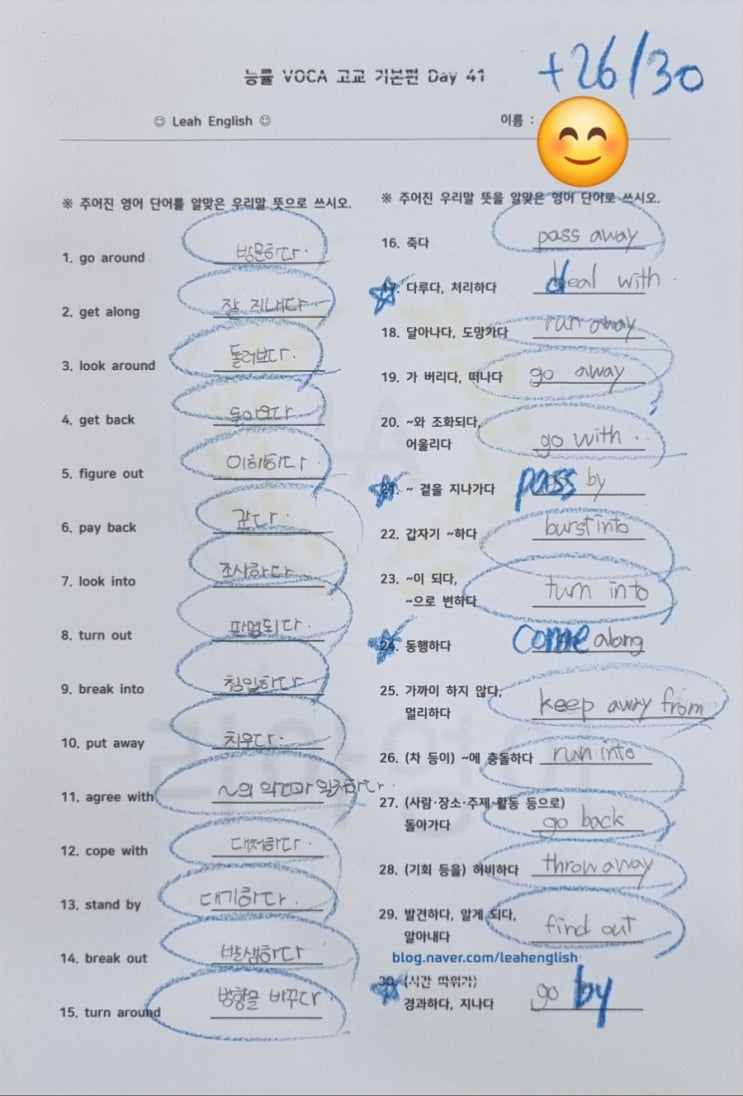 능률 VOCA 고교 기본편 Day 41
+26/30
☺ Leah English ☺
이름 :
※ 주어진 영어 단어를 알맞은 우리말 뜻으로 쓰시오.
1. go around 방문하다.
2. get along 잘 지내다.
3. look around 둘러보다.
4. get back 돌아오다
5. figure out 이해하다.
6. pay back 갚다.
7. look into 조사하다.
8. turn out 판명되다.
9. break into 침입하다.
10. put away 치우다.
11. agree with ~의 의견과 일치하다.
12. cope with 대처하다.
13. stand by 대기하다.
14. break out 발생하다
15. turn around 방향을 바꾸다.
※ 주어진 우리말 뜻을 알맞은 영어 단어로 쓰시오.
16. 죽다 pass away
17. 다루다, 처리하다 deal with
18. 달아나다, 도망가다 run away
19. 가 버리다, 떠나다 go away
20. ~와 조화되다,
어울리다 go with.
21. ~ 곁을 지나가다 pass by
22. 갑자기 ~하다 burst into
23. ~이 되다,
~으로 변하다 turn into
24. 동행하다 come along
25. 가까이 하지 않다,
멀리하다 keep away from
26. (차 등이) ~에 충돌하다 run into
27. (사람·장소·주제·활동 등으로)
돌아가다 go back
28. (기회 등을) 허비하다 throw away
29. 발견하다, 알게 되다,
알아내다 find out
blog.naver.com/leahenglish
30. (시간 따위가)
경과하다, 지나다 go by